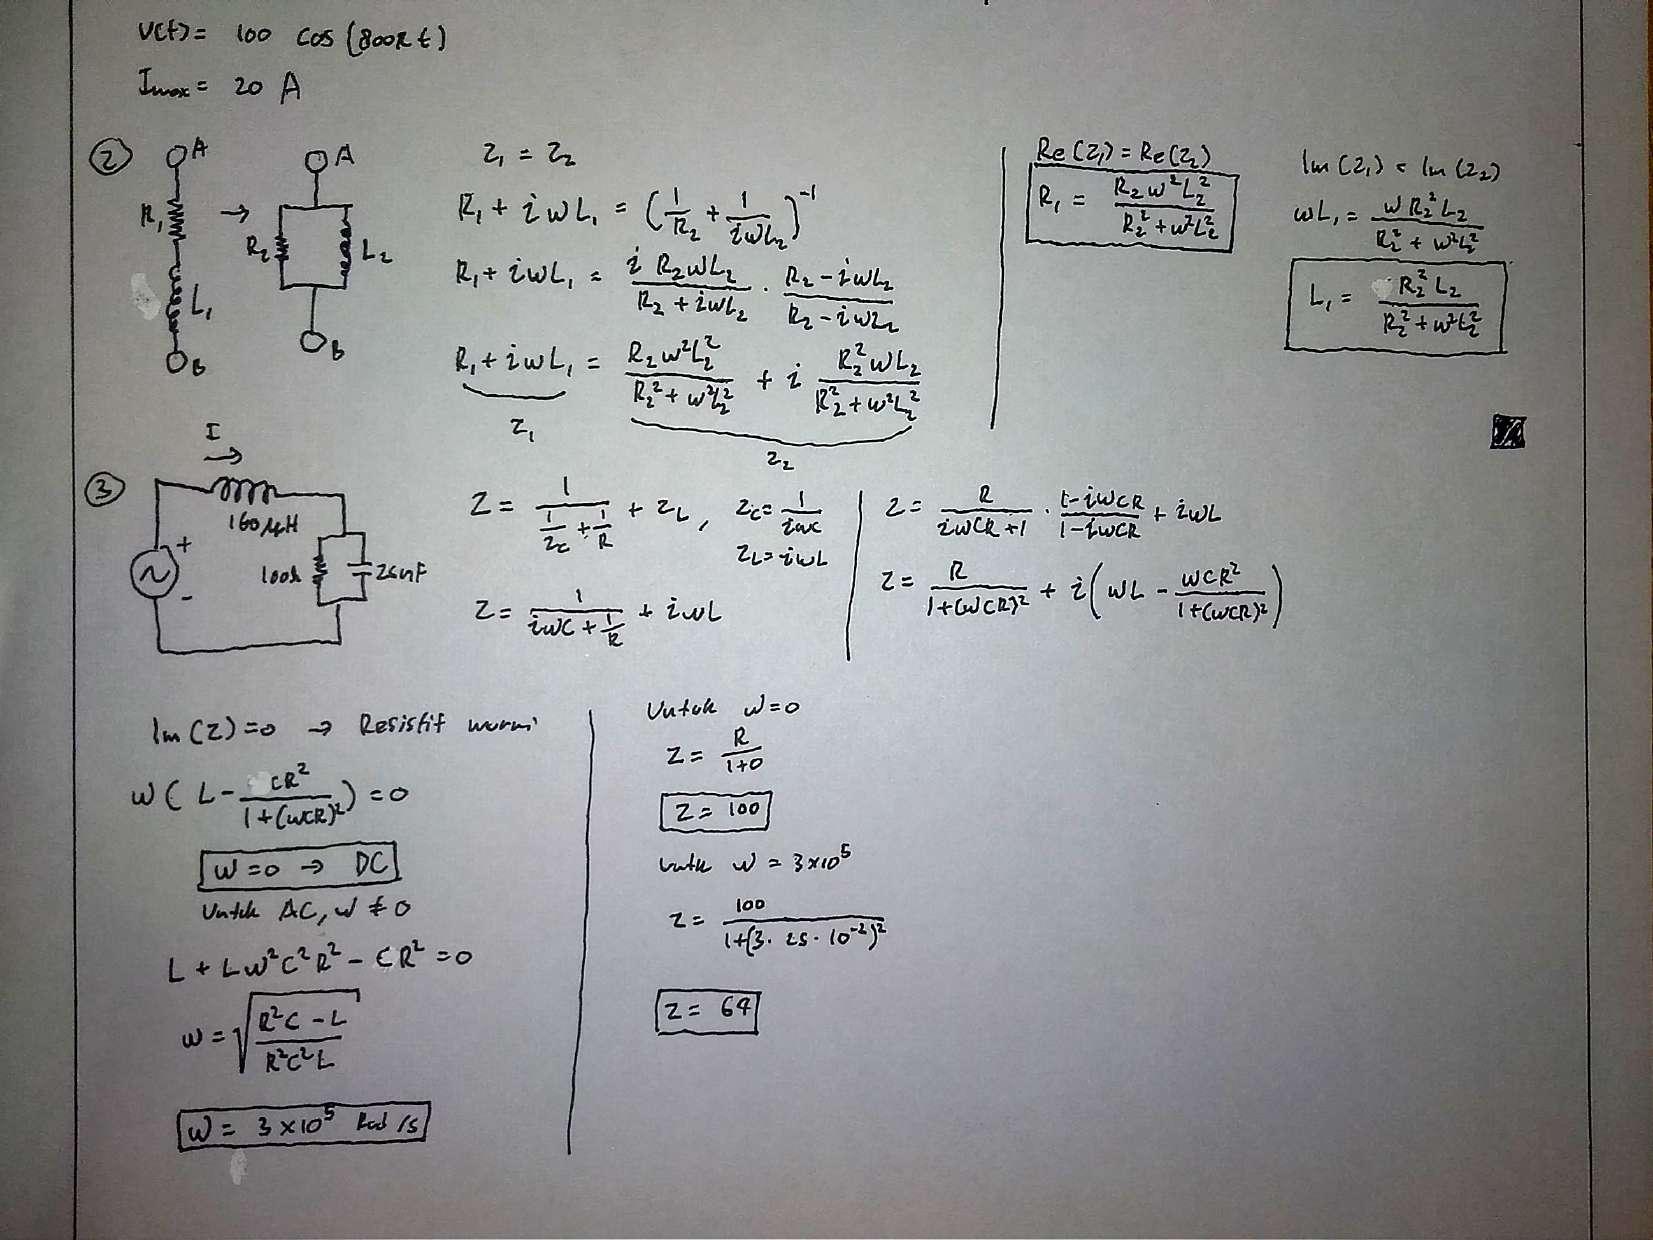 V(t) = 100 cos (800π t)
Imax = 20 A
② A → A
R₁ R₂ L₂
L₁
B B
Z₁ = Z₂
R₁ + iωL₁ = (1/R₂ + 1/iωL₂)⁻¹
R₁ + iωL₁ = i R₂ωL₂/R₂ + iωL₂ · R₂ - iωL₂/R₂ - iωL₂
R₁ + iωL₁ = R₂ω²L₂²/R₂² + ω²L₂² + i R₂²ωL₂/R₂² + ω²L₂²
Z₁ Z₂
Re(Z₁) = Re(Z₂)
R₁ = R₂ω²L₂²/R₂² + ω²L₂²
Im(Z₁) = Im(Z₂)
ωL₁ = ωR₂²L₂/R₂² + ω²L₂²
L₁ = R₂²L₂/R₂² + ω²L₂²
③ I →
160μH
+ ~ -
100Ω 25nF
Z = 1/(1/Zc + 1/R) + ZL, Zc = 1/iωC
ZL = iωL
Z = 1/(iωC + 1/R) + iωL
Z = R/iωCR + 1 · 1 - iωCR/1 - iωCR + iωL
Z = R/1 + (ωCR)² + i(ωL - ωCR²/1 + (ωCR)²)
Im(Z) = 0 → Resistif murni
ω(L - CR²/1 + (ωCR)²) = 0
ω = 0 → DC
Untuk AC, ω ≠ 0
L + Lω²C²R² - CR² = 0
ω = √(R²C - L/R²C²L)
ω = 3 × 10⁵ Rad/s
Untuk ω = 0
Z = R/1+0
Z = 100
Untuk ω = 3×10⁵
Z = 100/1+(3 · 25 · 10⁻²)²
Z = 64